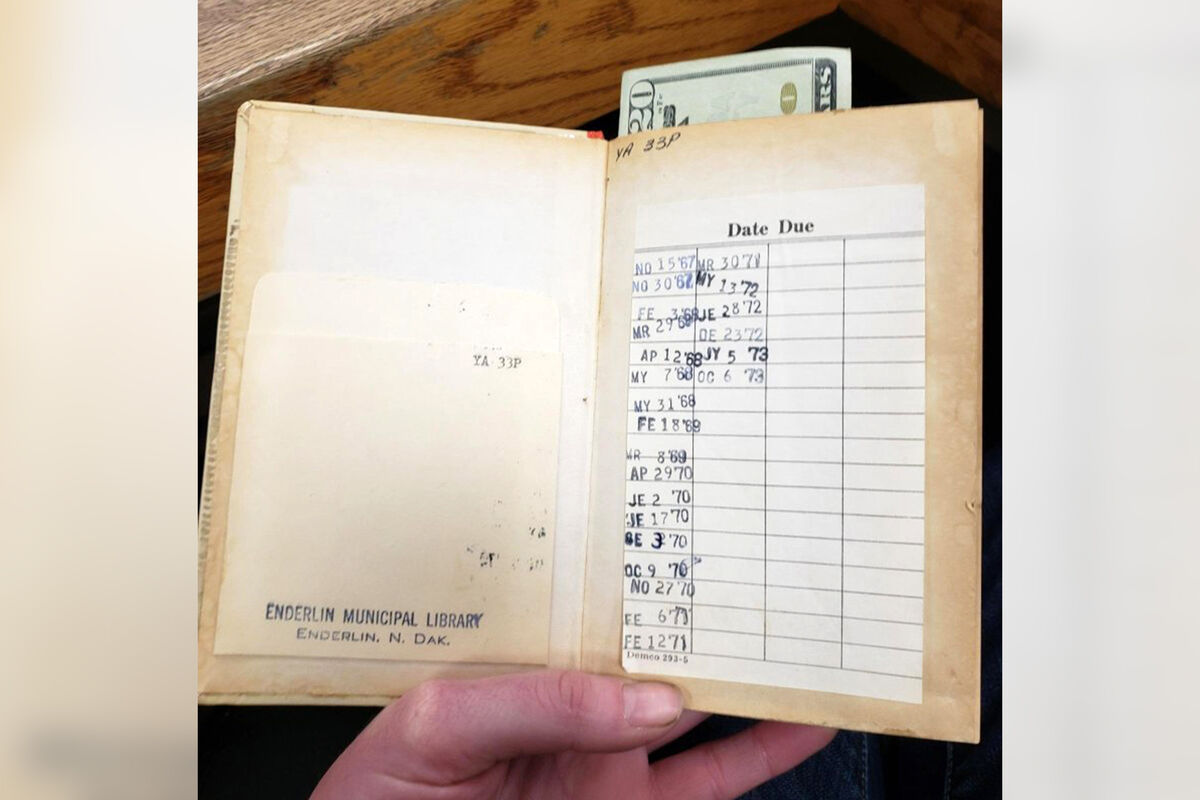 20
YA 33P
Date Due
NO 15 '67
NO 30 '67
FE 3 '68
MR 29 '68
AP 12 '68
MY 7 '68
MY 31 '68
FE 18 '69
MR 8 '69
AP 29 '70
JE 2 '70
JE 17 '70
3 '70
OC 9 '70
NO 27 '70
FE 6 '71
FE 12 '71
MR 30 '71
MY 13 '72
JE 28 '72
DE 23 '72
JY 5 '73
OC 6 '73
Demco 293-5
YA 33P
ENDERLIN MUNICIPAL LIBRARY
ENDERLIN, N. DAK.